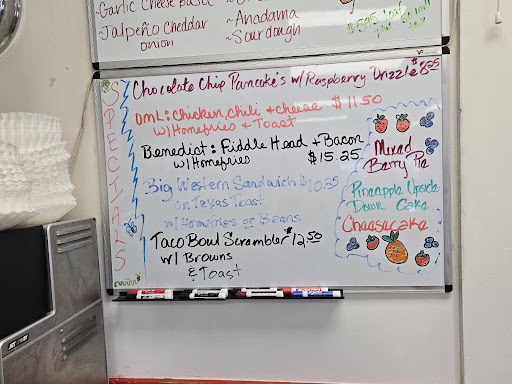 ~Garlic Cheese
~Jalpeño Cheddar
onion
~Anadama
~Sourdough
SPECIALS
Chocolate Chip Pancake's w/Raspberry Drizzle $8.25
OML: Chicken, Chili + Cheese $11.50
w/Homefries + Toast
Benedict: Fiddle Head + Bacon
w/Homefries $15.25
Big Western Sandwich $10.25
on Texas Toast
w/Homefries or Beans
Taco Bowl Scrambler $12.50
w/ Browns
& Toast
Mixed
Berry Pie
Pineapple Upside
Down Cake
Cheesecake